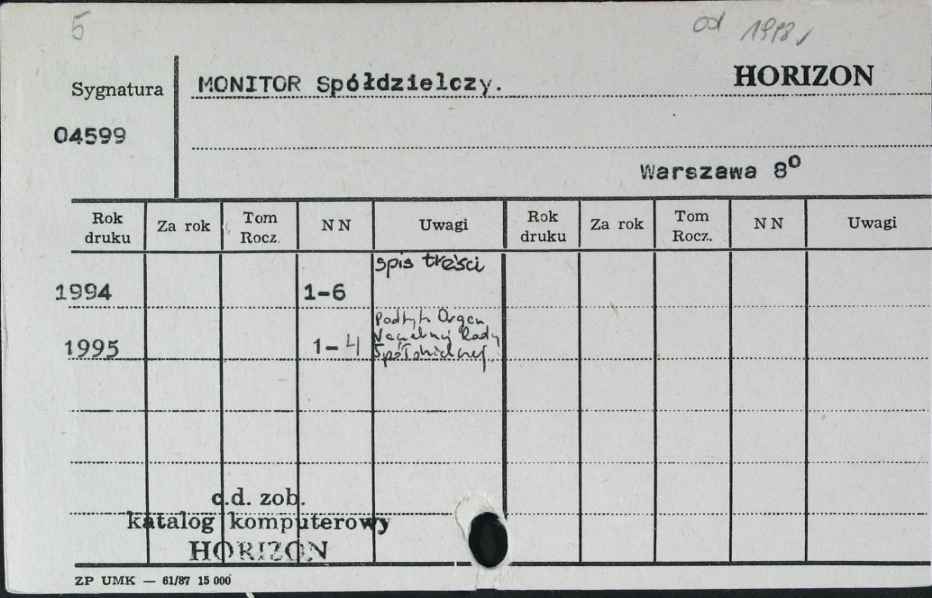 5
od 1998 r
Sygnatura
MONITOR Spółdzielczy.
HORIZON
04599
Warszawa 8⁰
Rok druku Za rok Tom Rocz. N N Uwagi Rok druku Za rok Tom Rocz. N N Uwagi
spis treści
1994 1-6
Podtyt. Organ
1995 1-4 Naczelnej Rady
Spółdzielczej
c.d. zob.
katalog komputerowy
HORIZON
ZP UMK — 61/87 15 000